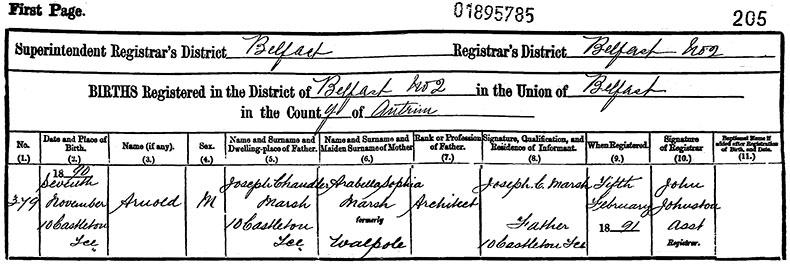 First Page. 01895785 205
Superintendent Registrar's District Belfast Registrar's District Belfast No 2
BIRTHS Registered in the District of Belfast No 2 in the Union of Belfast
in the County of Antrim
No. Date and Place of Birth. Name (if any). Sex. Name and Surname and Dwelling-place of Father. Name and Surname and Maiden Surname of Mother Rank or Profession of Father. Signature, Qualification, and Residence of Informant. When Registered. Signature of Registrar Baptismal Name if added after Registration of Birth, and Date.
(1.) (2.) (3.) (4.) (5.) (6.) (7.) (8.) (9.) (10.) (11.)
1890
Seventh Joseph Chandler Arabella Sophia Joseph C. Marsh Fifth John
379 November Arnold M Marsh Marsh Architect February Johnston
10 Castleton 10 Castleton formerly Father 1891 Asst
Tce Tce Walpole 10 Castleton Tce Registrar.